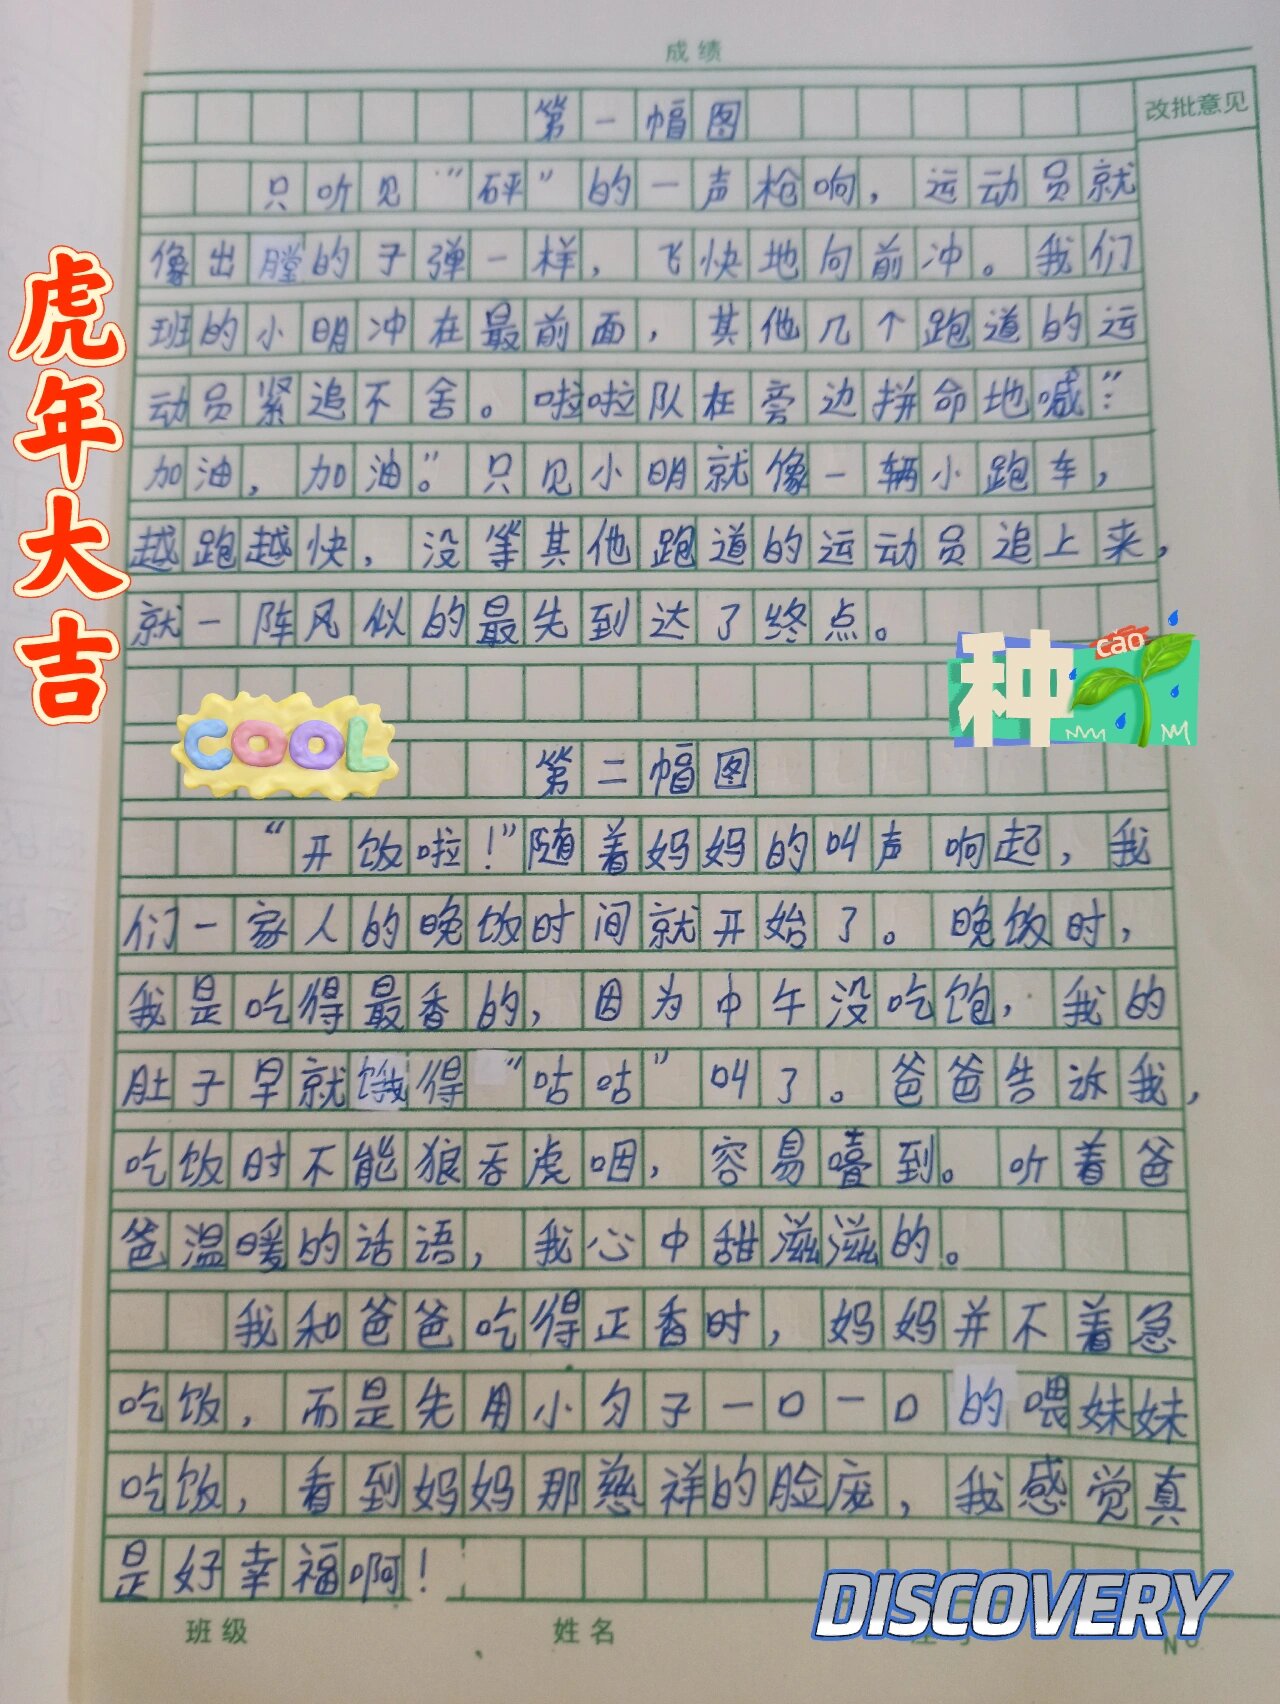 成绩
改批意见
第一幅图
只听见“砰”的一声枪响，运动员就
像出膛的子弹一样，飞快地向前冲。我们
班的小明冲在最前面，其他几个跑道的运
动员紧追不舍。啦啦队在旁边拼命地喊：“
加油，加油。”只见小明就像一辆小跑车，
越跑越快，没等其他跑道的运动员追上来，
就一阵风似的最先到达了终点。
虎年大吉
种cǎo
COOL
第二幅图
“开饭啦！”随着妈妈的叫声响起，我
们一家人的晚饭时间就开始了。晚饭时，
我是吃得最香的，因为中午没吃饱，我的
肚子早就饿得“咕咕”叫了。爸爸告诉我，
吃饭时不能狼吞虎咽，容易噎到。听着爸
爸温暖的话语，我心中甜滋滋的。
我和爸爸吃得正香时，妈妈并不着急
吃饭，而是先用小勺子一口一口的喂妹妹
吃饭，看到妈妈那慈祥的脸庞，我感觉真
是好幸福啊！
DISCOVERY
班级
姓名